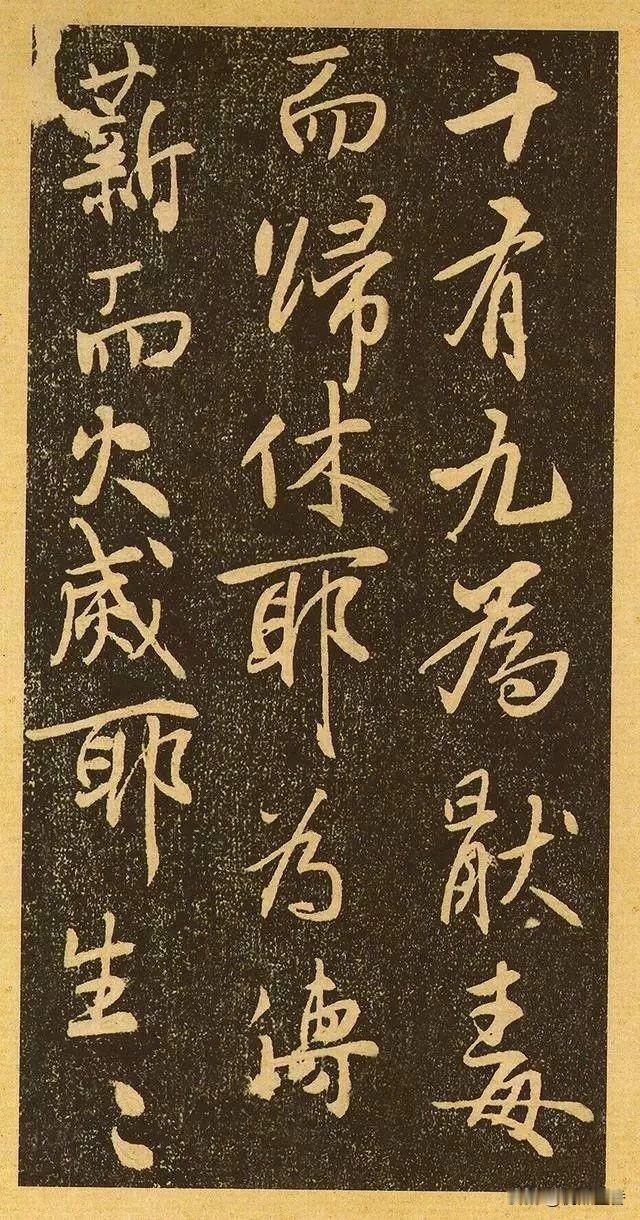 十有九為猒毒
而歸休耶为傳
薪而火烕耶生〻